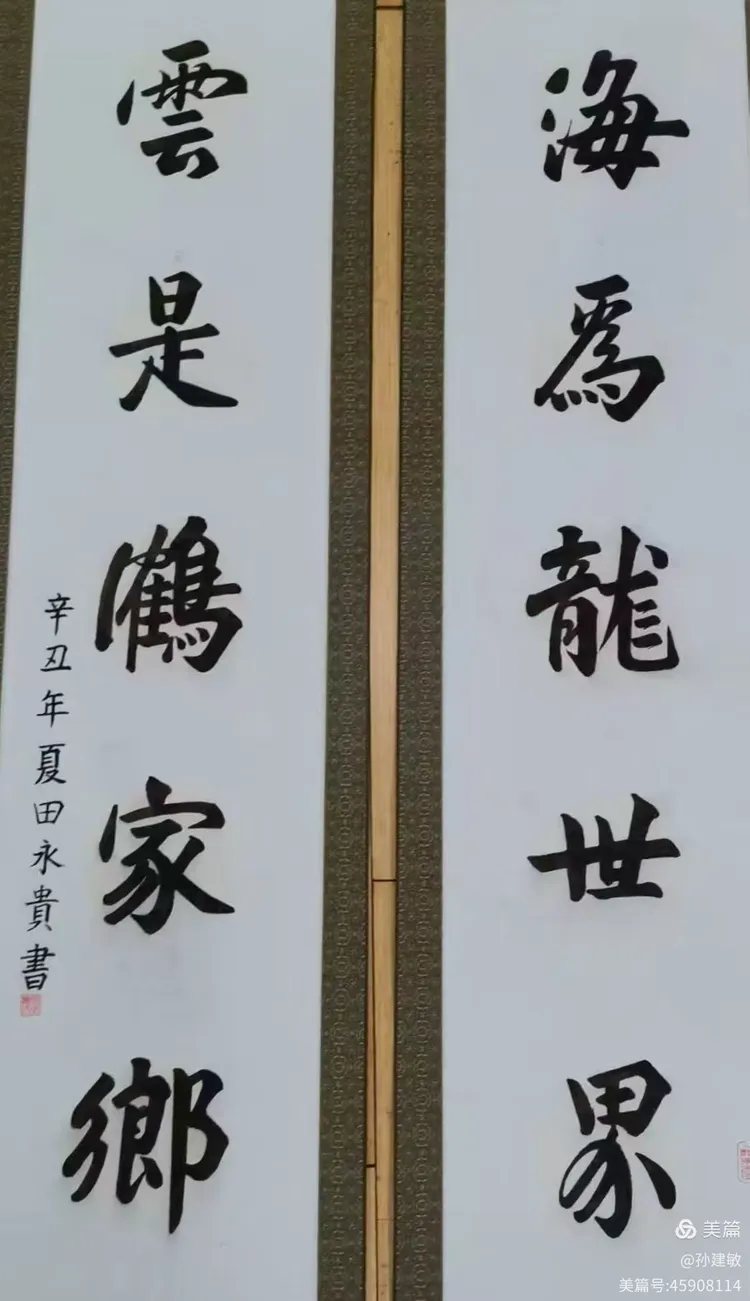 海爲龍世界
雲是鶴家鄉
辛丑年夏田永貴書
美篇
@孙建敏
美篇号:45908114